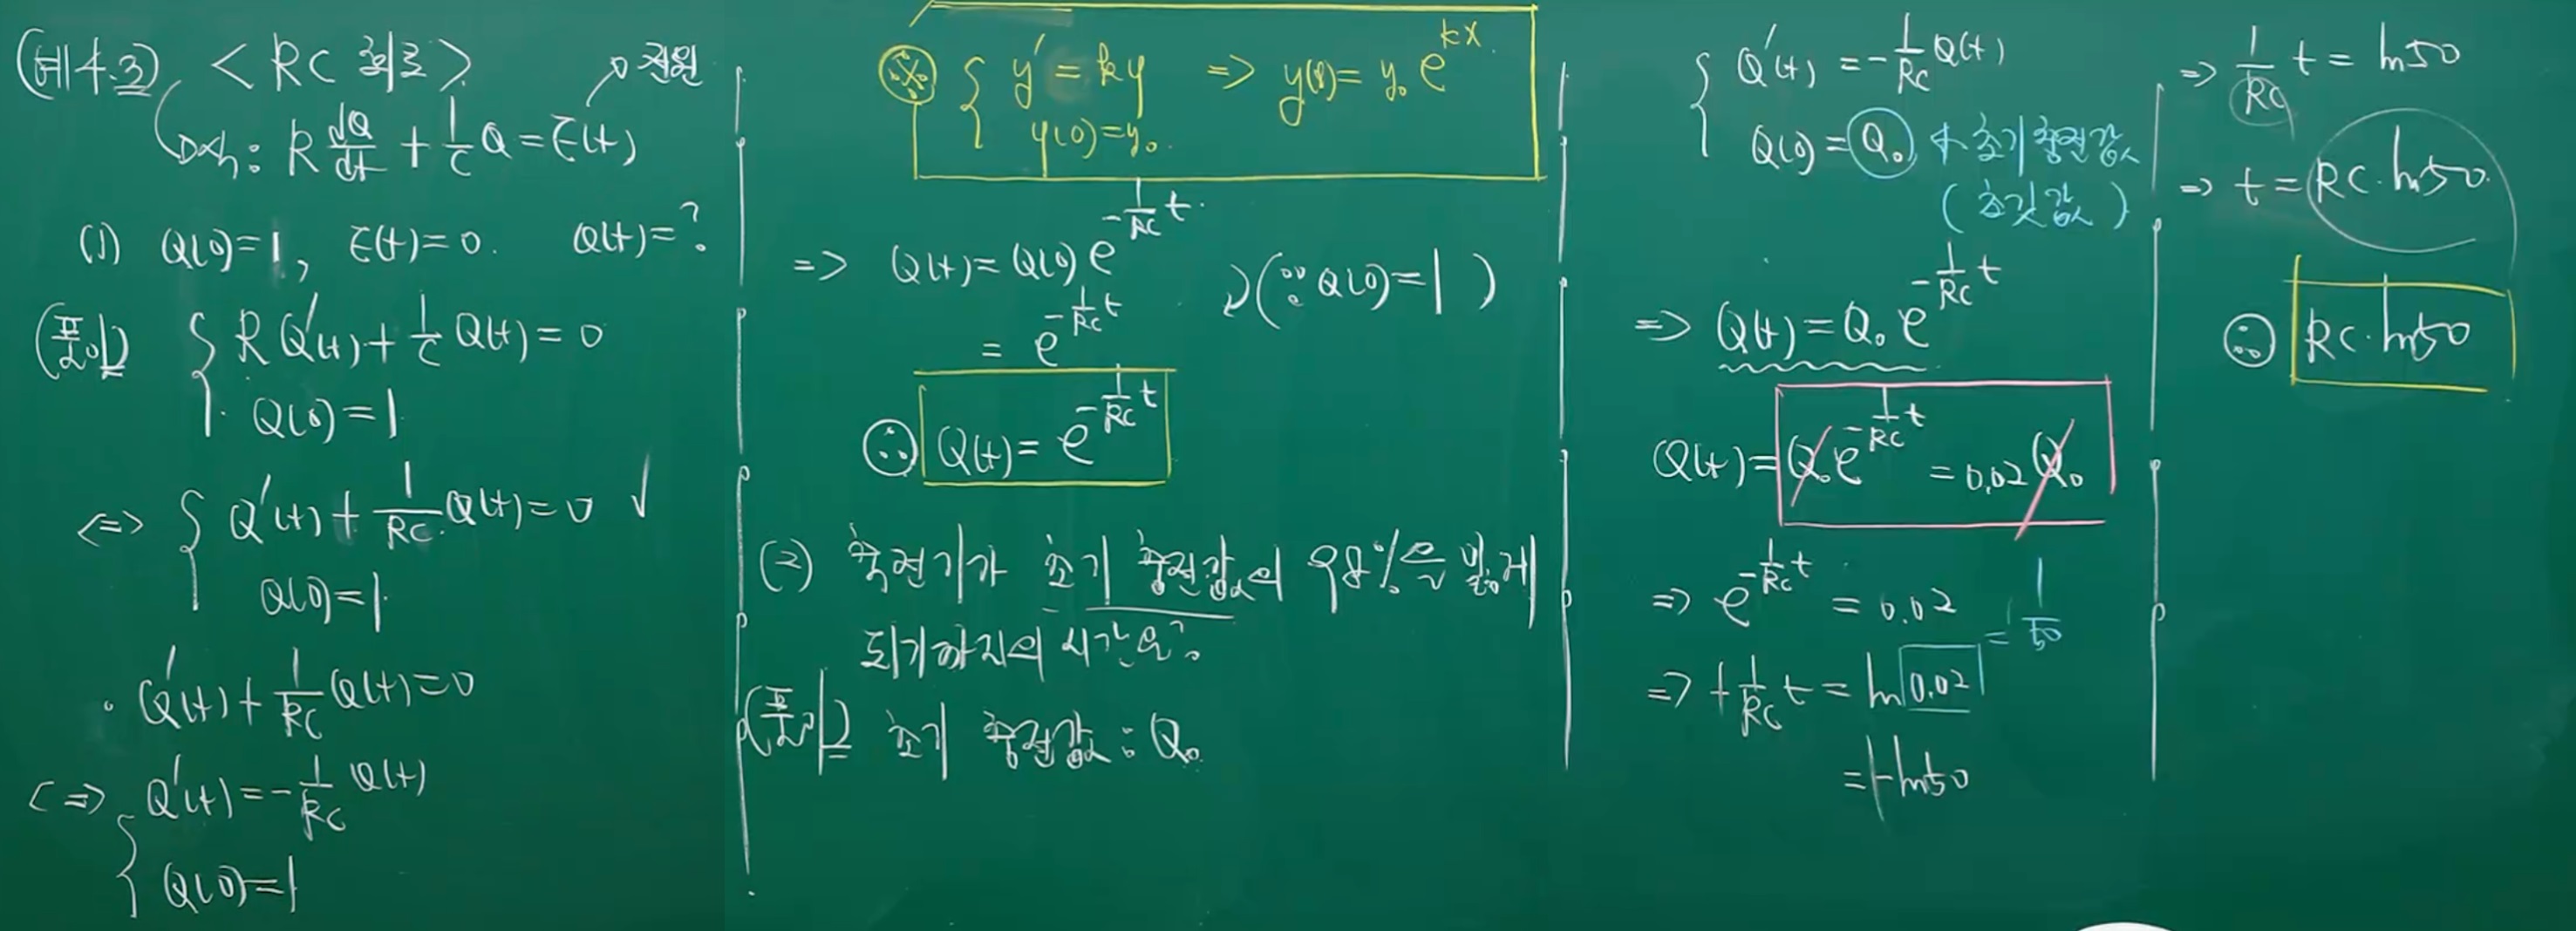 (예 4.3) <RC 회로>
전원
DE: R dQ/dt + 1/C Q = E(t)
(1) Q(0)=1, E(t)=0. Q(t)=?
(풀이) { R Q'(t) + 1/C Q(t) = 0
Q(0)=1
<=> { Q'(t) + 1/RC Q(t) = 0 √
Q(0)=1
· Q'(t) + 1/RC Q(t) = 0
<=> { Q'(t) = -1/RC Q(t)
Q(0)=1
※ { y' = ky => y(x) = y₀ e^{kx}
y(0)=y₀
=> Q(t) = Q(0) e^{-1/RC t}
= e^{-1/RC t} (∵ Q(0)=1)
∴ Q(t) = e^{-1/RC t}
(2) 축전기가 초기 충전값의 98%를 잃게
되기까지의 시간은?
(풀이) 초기 충전값 : Q₀
{ Q'(t) = -1/RC Q(t)
Q(0) = Q₀ ← 초기 충전값
(초깃값)
=> Q(t) = Q₀ e^{-1/RC t}
Q(t) = Q₀ e^{-1/RC t} = 0.02 Q₀
=> e^{-1/RC t} = 0.02
=> -1/RC t = ln 0.02 = 1/50
= -ln50
=> 1/RC t = ln50
=> t = RC · ln50
∴ RC · ln50